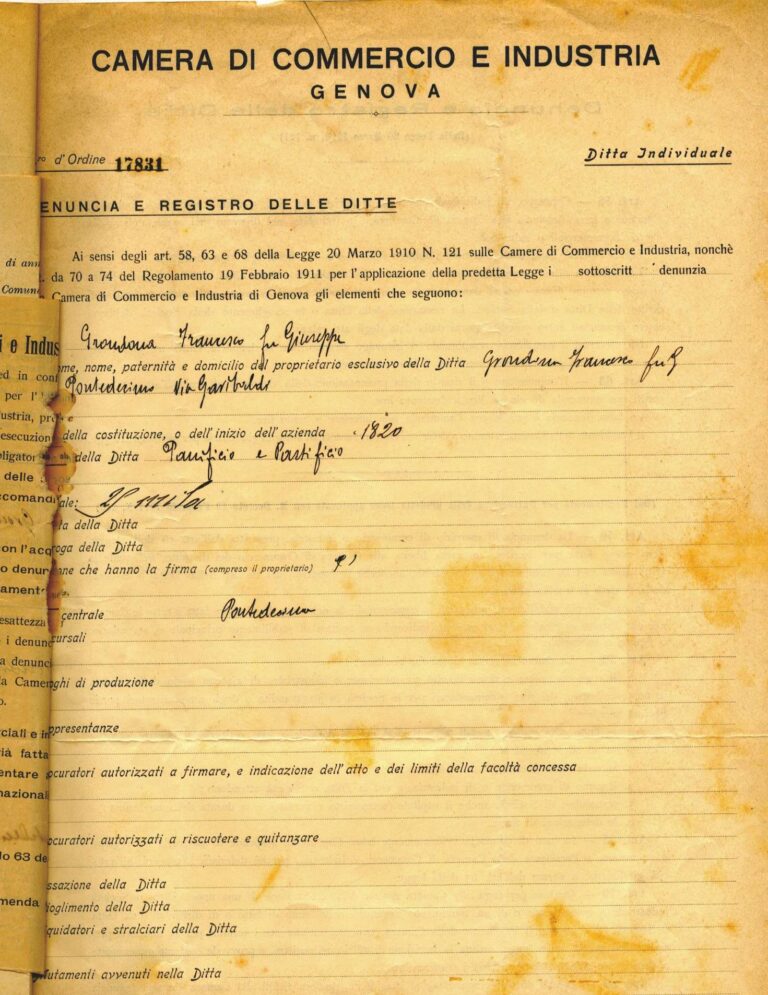 CAMERA DI COMMERCIO E INDUSTRIA
GENOVA
ro d'Ordine 17831
Ditta Individuale
ENUNCIA E REGISTRO DELLE DITTE
Ai sensi degli art. 58, 63 e 68 della Legge 20 Marzo 1910 N. 121 sulle Camere di Commercio e Industria, nonchè
da 70 a 74 del Regolamento 19 Febbraio 1911 per l'applicazione della predetta Legge i sottoscritt denunzia
Camera di Commercio e Industria di Genova gli elementi che seguono:
Grondona Francesco fu Giuseppe
ome, nome, paternità e domicilio del proprietario esclusivo della Ditta Grondona Francesco fu G
Pontedecimo Via Garibaldi
della costituzione, o dell'inizio dell'azienda 1820
della Ditta Panificio e Pastificio
ale: 25 mila
ta della Ditta
oga della Ditta
one che hanno la firma (compreso il proprietario)
centrale Pontedecimo
cursali
ghi di produzione
ppresentanze
ocuratori autorizzati a firmare, e indicazione dell'atto e dei limiti della facoltà concessa
ocuratori autorizzati a riscuotere e quitanzare
ssazione della Ditta
ioglimento della Ditta
quidatori e stralciari della Ditta
utamenti avvenuti nella Ditta
di ann
Comun
i e Indus
ed in con
per l'
ustria, pr
esecuzion
bligator
delle
ccomand
con l'acq
o denun
ament
esattezza
i denun
a denunc
la Camer
o.
rciali e in
ià fatta
entare
nazional
lo 63 de
menda